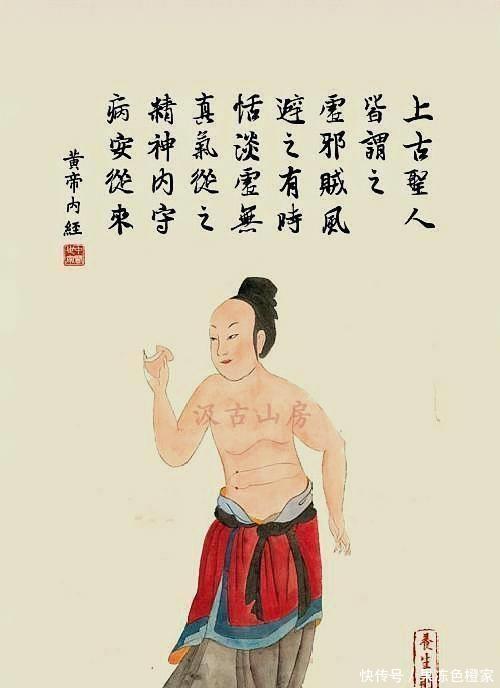 上古聖人
皆謂之
虛邪賊風
避之有時
恬淡虛無
真氣從之
精神内守
病安從來
黃帝内經
汲古山房
養生
快传号／果冻色橙家